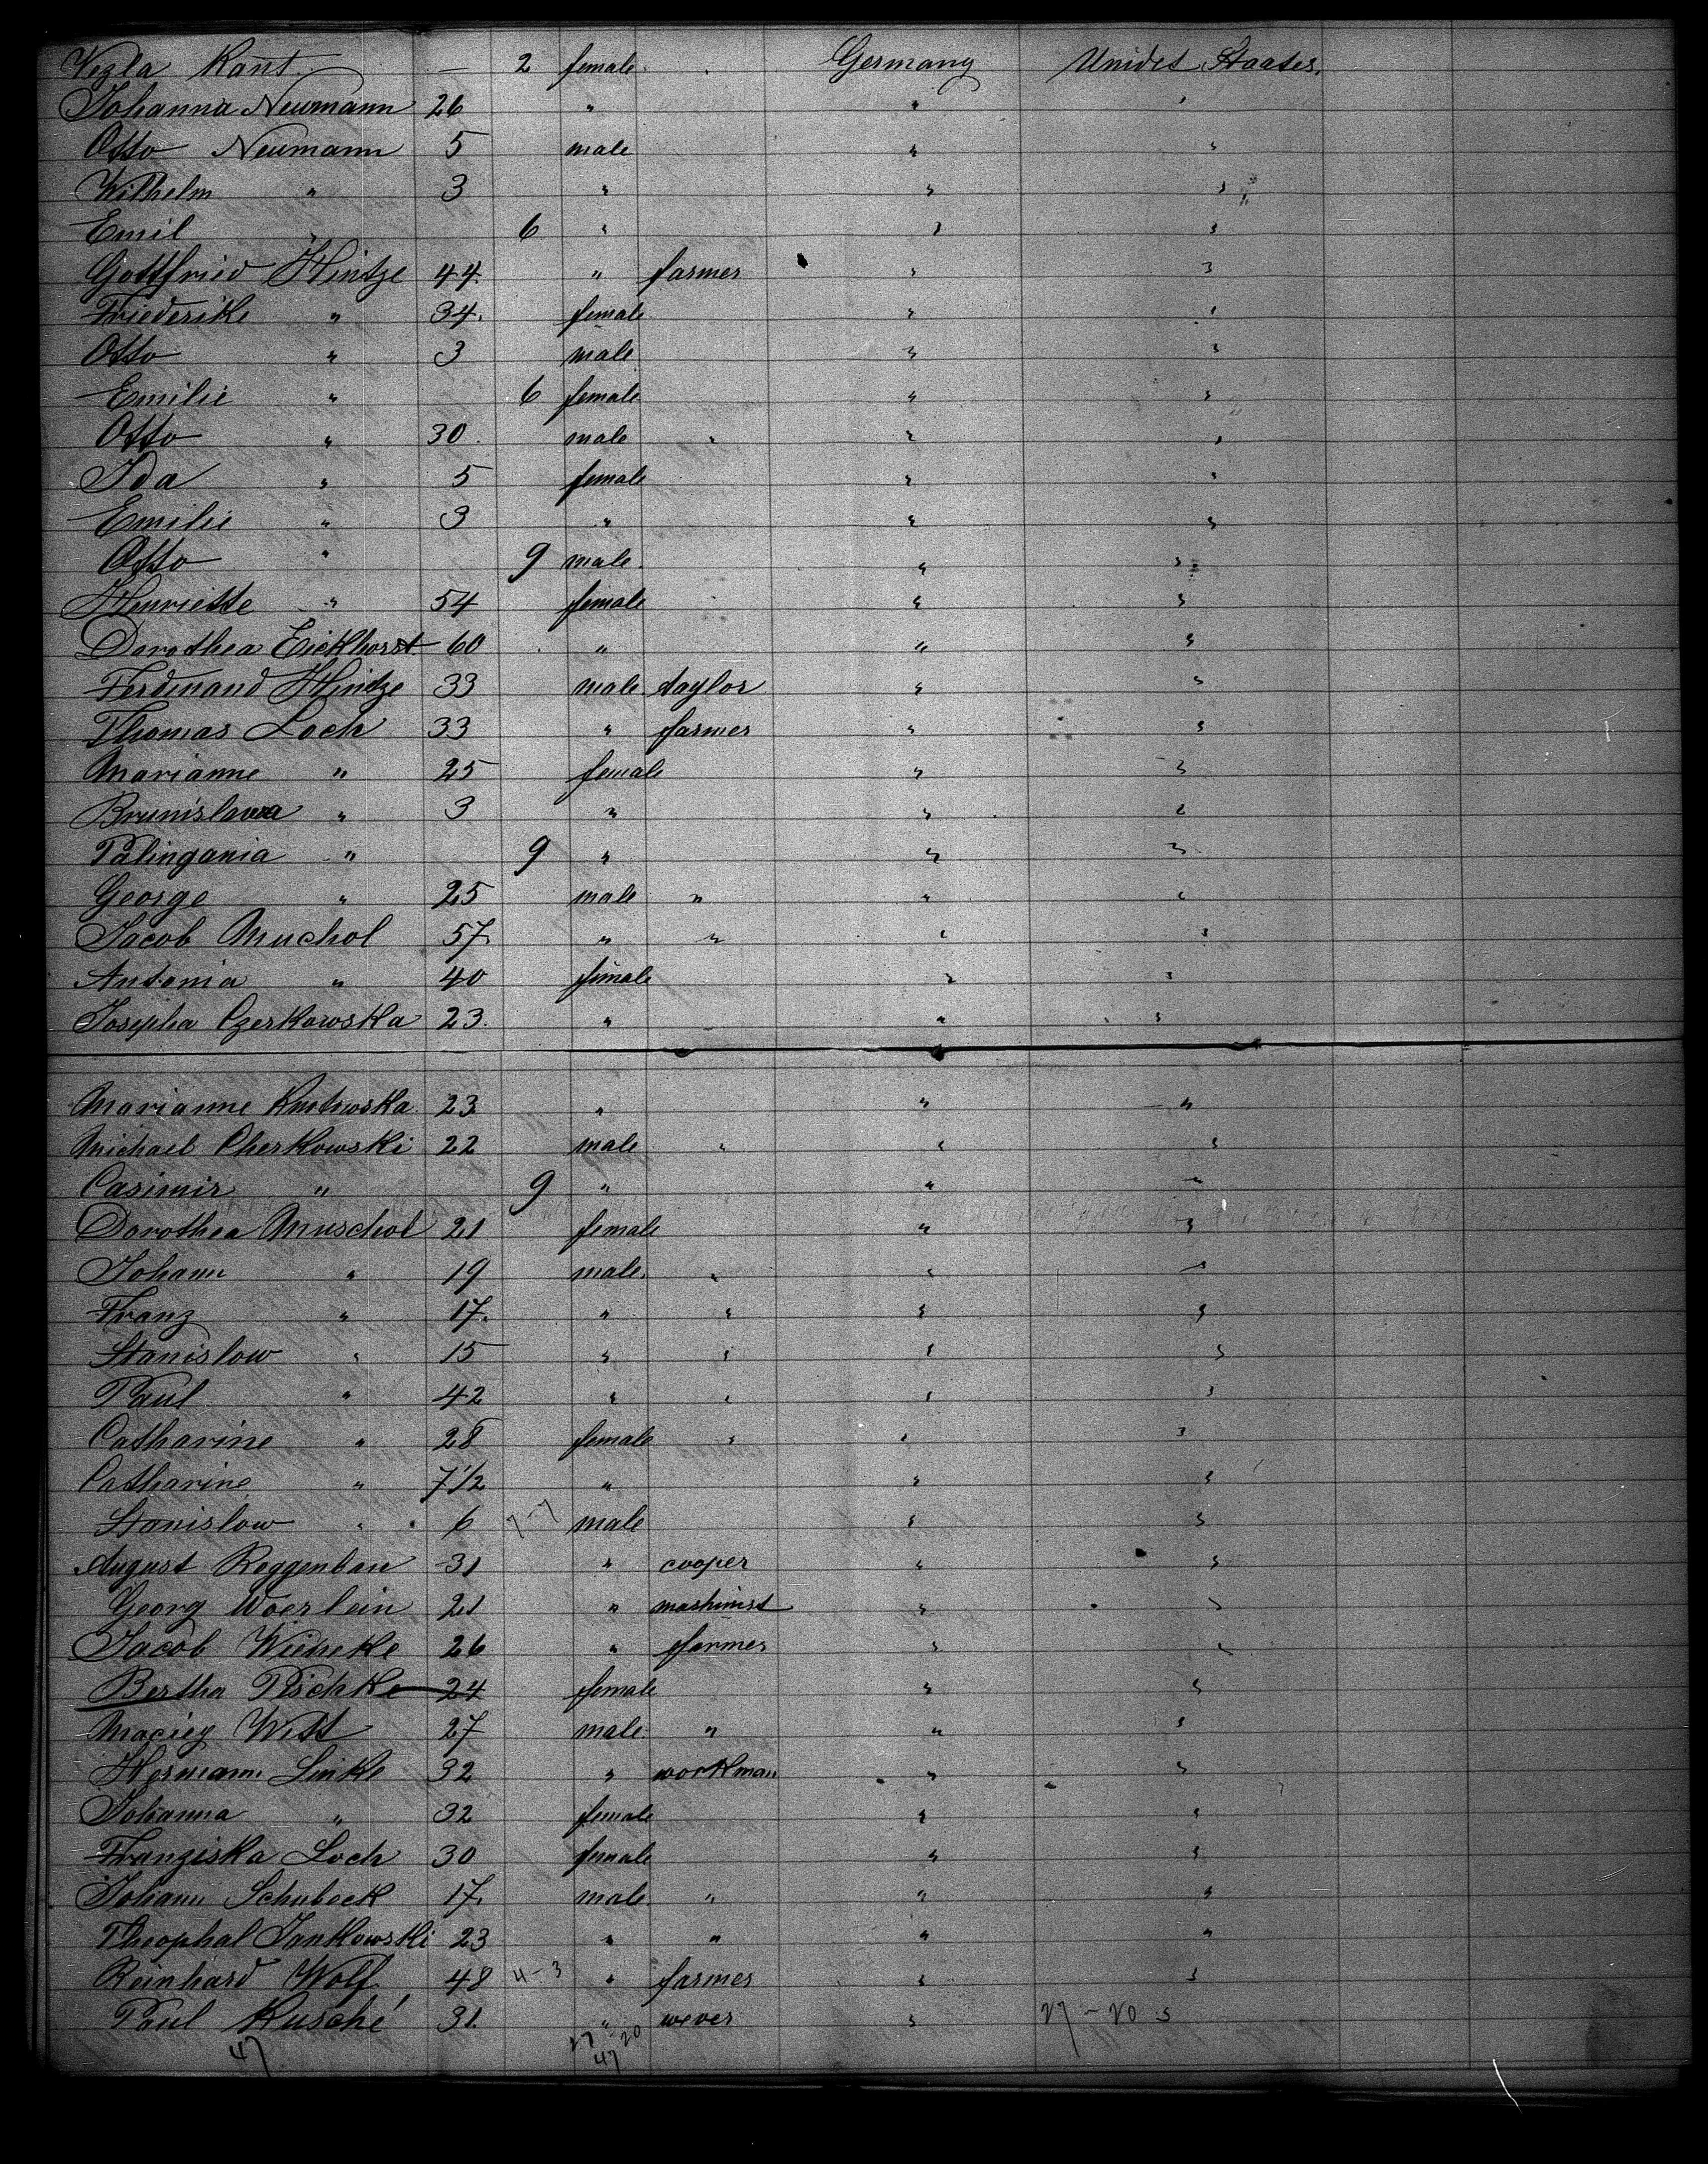 Vegla Kant — 2 female " Germany Unidet Staates.
Johanna Neumann 26 " " "
Otto Neumann 5 male " "
Wilhelm " 3 " " "
Emil " 6 " " "
Gottfried Hintze 44 " farmer " "
Friederike " 34. female " "
Otto " 3 male " "
Emilie " 6 female " "
Otto " 30. male " " "
Ida " 5 female " "
Emilie " 3 " " "
Otto " 9 male " "
Henriette " 54 female " "
Dorothea Eickhorst 60 " " "
Ferdinand Hintze 33 male taylor " "
Thomas Loch 33 " farmer " "
Marianne " 25 female " "
Brunislawa " 3 " " "
Palingania " 9 " " "
George " 25 male " " "
Jacob Muchol 57 " " " "
Antonia " 40 female " "
Josepha Czerkowska 23. " " "
Marianne 23 " " "
Michael Cherkowski 22 male " " "
Casimir " 9 " " "
Dorothea Muschol 21 female " "
Johann " 19 male " " "
Franz " 17. " " " "
Stanislow " 15 " " " "
Paul " 42 " " " "
Catharine " 28 female " " "
Catharine " 7 1/2 " " "
Stanislow " 6 7-7 male " "
August Roggenbau 31 " cooper " "
Georg Woerlein 21 " mashinist " "
Jacob Wieneke 26 " farmer " "
Bertha Pischke 24 female " "
Maciey Witt 27 male " " "
Hermann Linke 32 " workman " "
Johanna " 32 female " "
Franziska Loch 30 female " "
Johann Schubeck 17. male " " "
Theophal Jankowski 23 " " " "
Reinhard Wolf 48 4-3 " farmer " "
Paul Rusché 31. " wever " 27-20 "
47 27-20
47